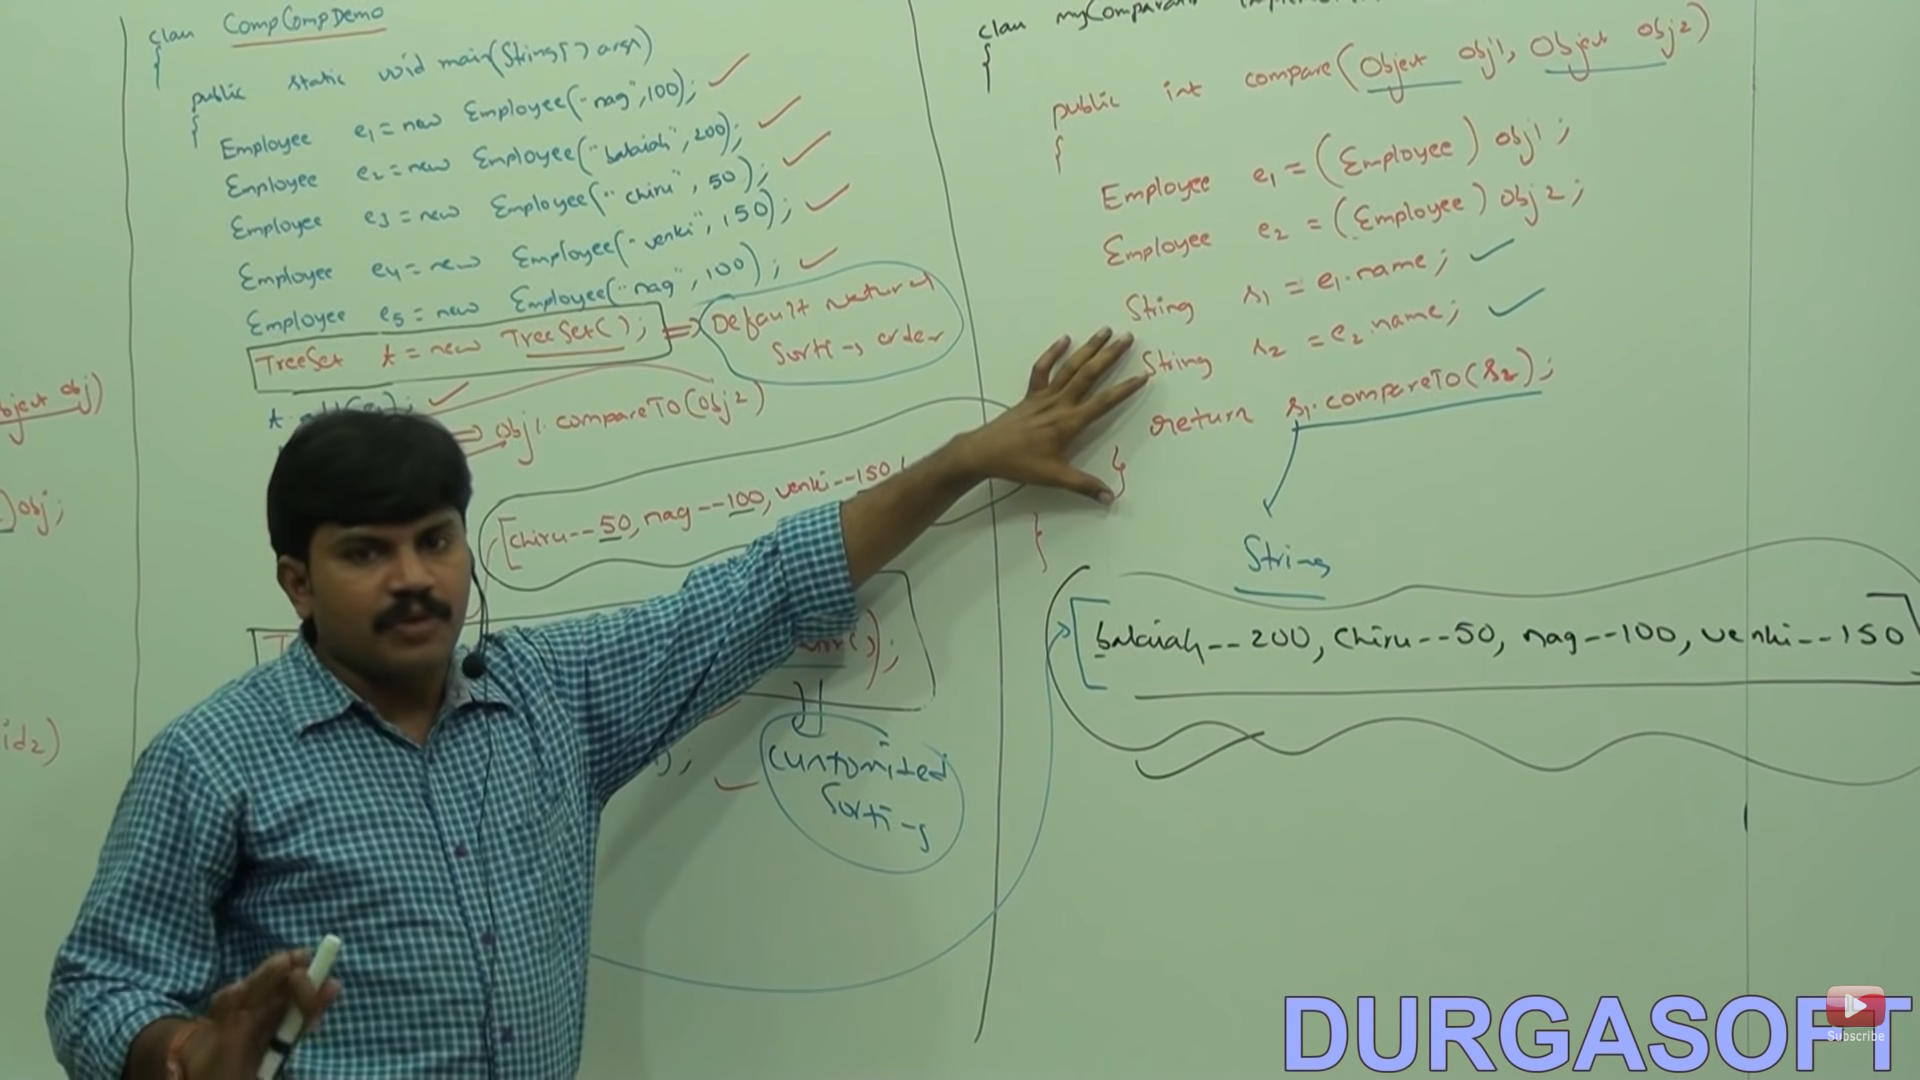 class CompCompDemo
{
public static void main(String[] args)
{
Employee e1 = new Employee("nag",100);
Employee e2 = new Employee("balaiah",200);
Employee e3 = new Employee("chiru", 50);
Employee e4 = new Employee("venki",150);
Employee e5 = new Employee("nag",100);
TreeSet t = new TreeSet(); => Default natural
Sorting order
=> obj1.compareTo(obj2)
[chiru--50, nag--100, venki--150
();
customized
Sorting
);
bject obj)
)obj;
id2)
class myComparator
{
public int compare(Object obj1, Object obj2)
{
Employee e1 = (Employee) obj1;
Employee e2 = (Employee) obj2;
String s1 = e1.name;
String s2 = e2.name;
return s1.compareTo(s2);
}
}
String
[balaiah--200, chiru--50, nag--100, venki--150]
DURGASOFT
Subscribe